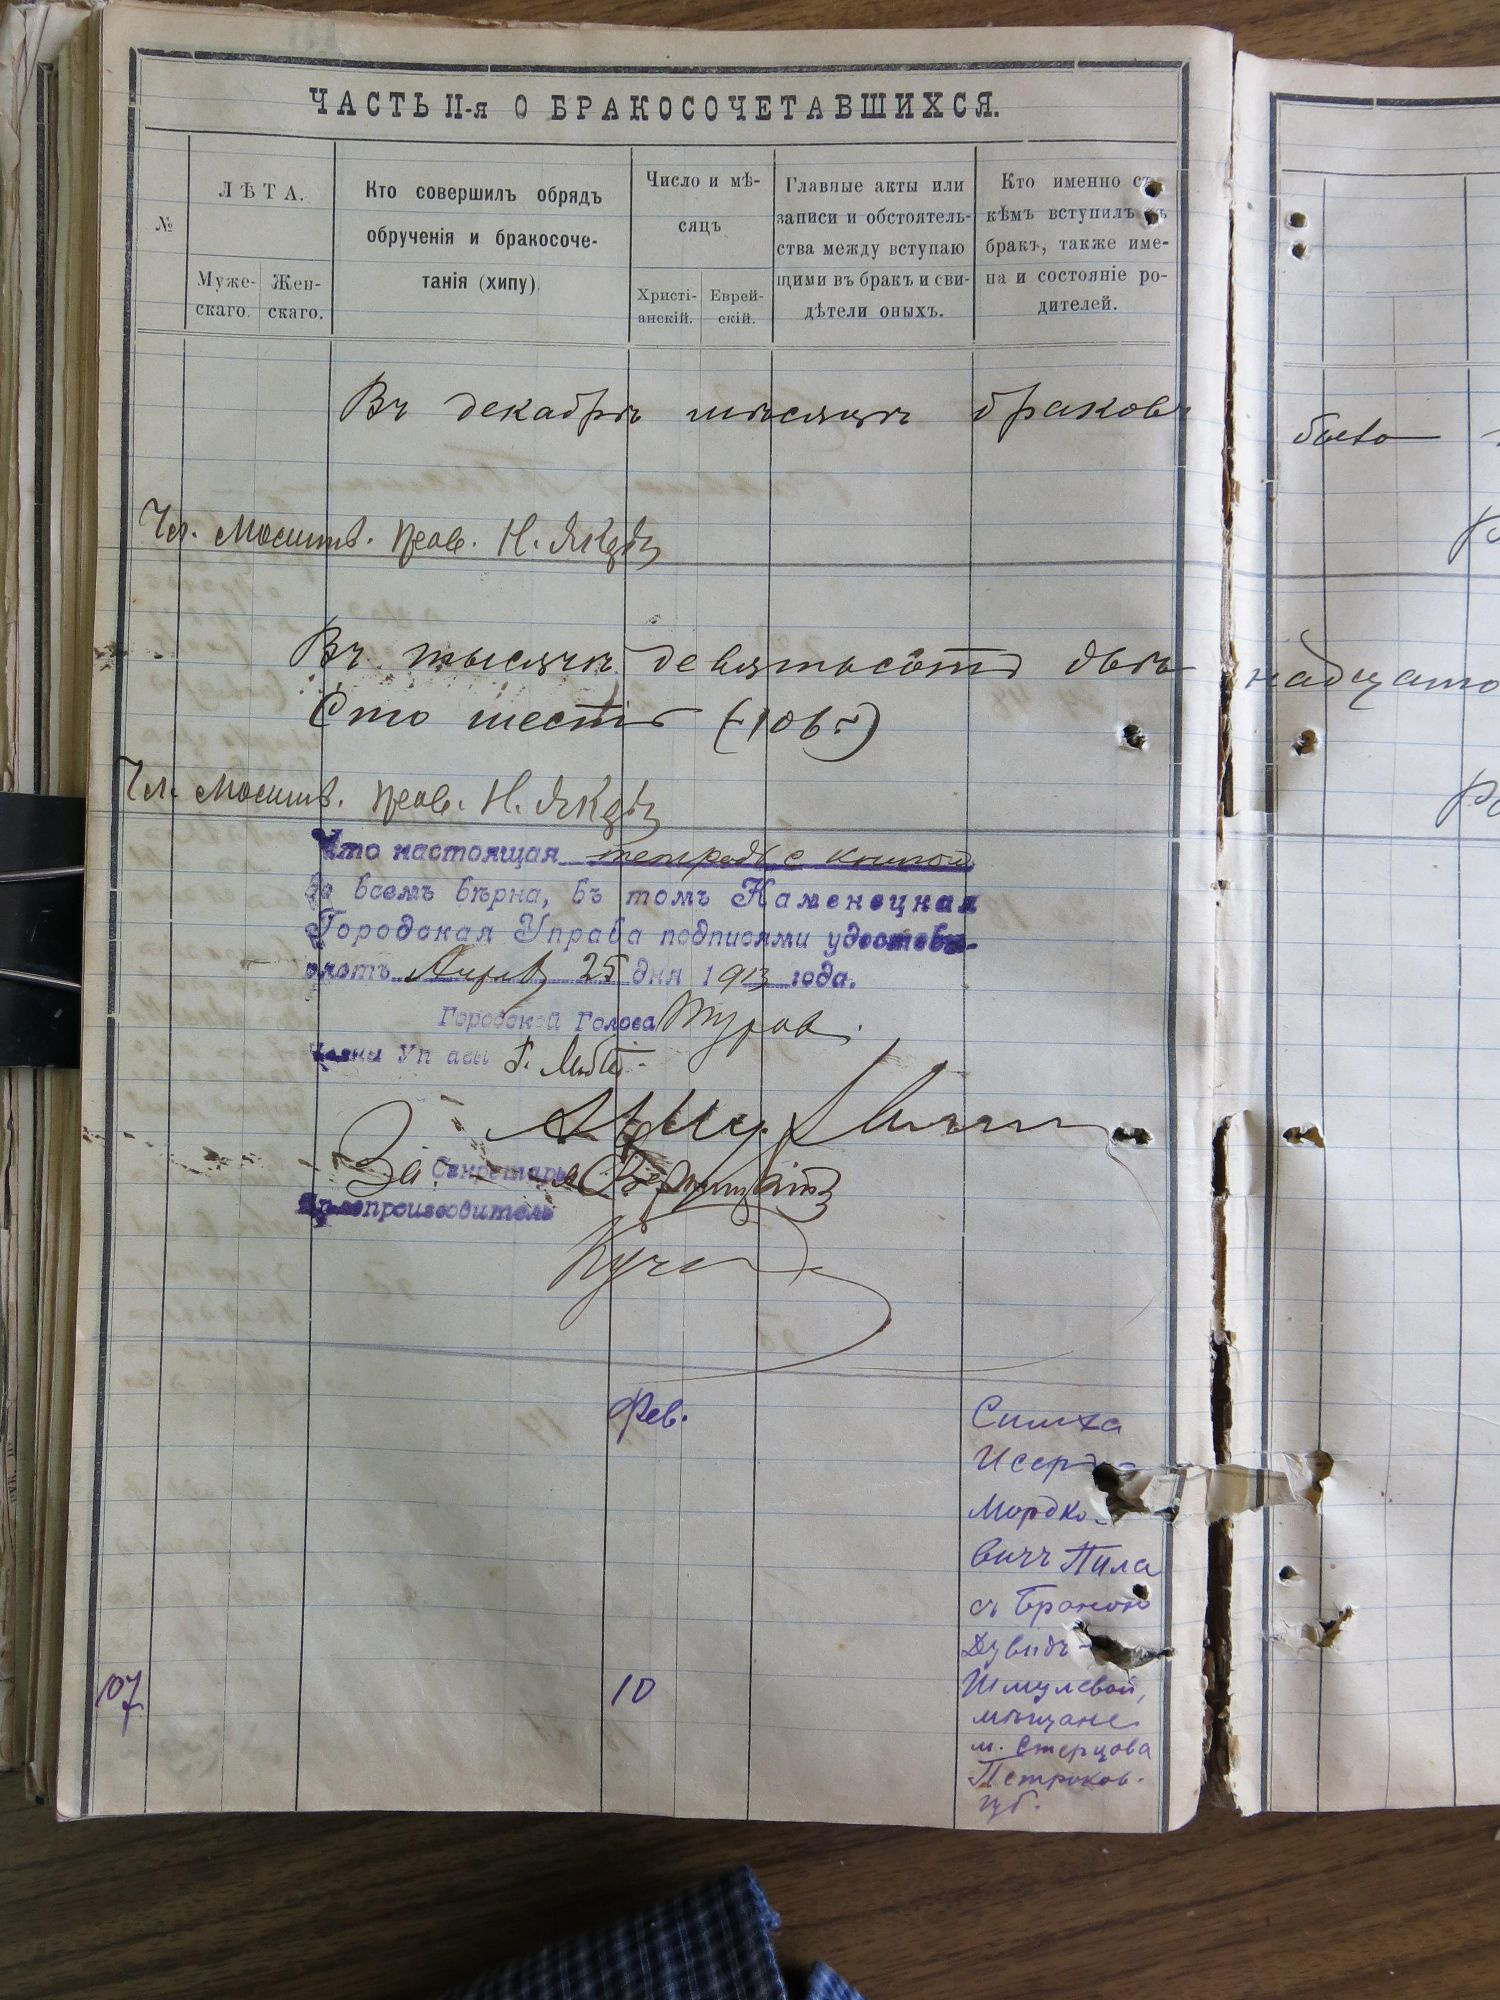 ЧАСТЬ II-я О БРАКОСОЧЕТАВШИХСЯ.
№
ЛѢТА.
Муже-
скаго.
Жен-
скаго.
Кто совершилъ обрядъ
обрученія и бракосоче-
танія (хипу)
Число и мѣ-
сяцъ
Христі-
анскій.
Еврей-
скій.
Главные акты или
записи и обстоятель-
ства между вступаю
щими въ бракъ и сви-
дѣтели оныхъ.
Кто именно съ
кѣмъ вступилъ въ
бракъ, также име-
на и состояніе ро-
дителей.
Въ декабрѣ мѣсяцѣ браковъ было
Чл. Н.
Въ тысяча девятьсотъ двѣнадцато
Сто шесть (-106-)
Чл. Н.
Что настоящая тетрадь с книгой
во всемъ вѣрна, въ томъ Каменецкая
Городская Управа подписями удостовѣ-
ряетъ 25 дня 1913 года.
Городской Голова Туров.
Члены Управы
За Секретаря
Дѣлопроизводитель
Фев.
107
10
Симха
Исеръ
Мордко-
вичъ Пила
съ Броною
Дувидъ-
Шмулевой,
мѣщане
м. Стерцова
Петроков.
губ.